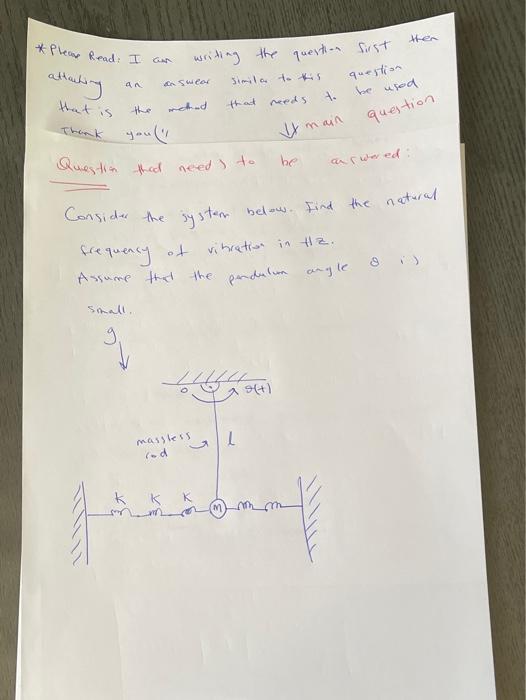 *Please Read: I am writing the question first then
attaching an answear similar to this question
that is the method that needs to be used
Thank you(!!
main question
Question that needs to be answered:
Consider the system below. Find the natural
frequency of vibration in Hz.
Assume that the pendulum angle θ is
small.
g
o θ(t)
massless
rod l
K K K
m